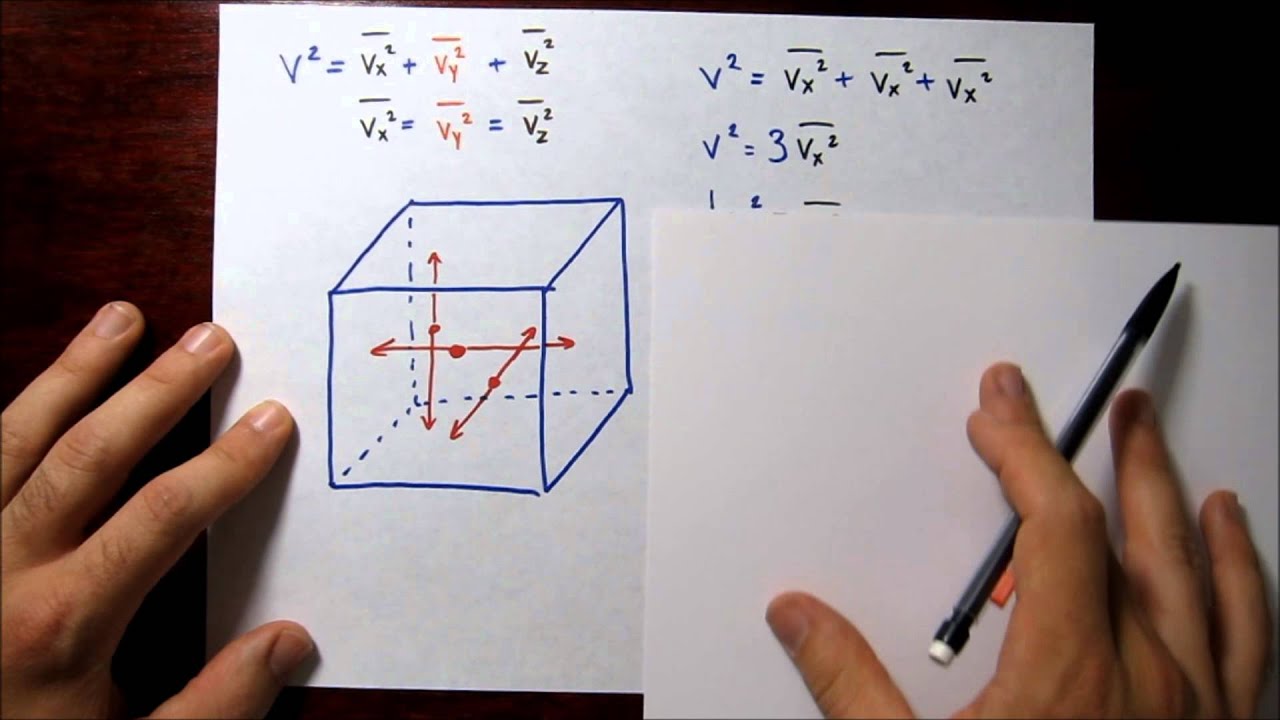 v² = v̅ₓ̅²̅ + v̅ᵧ̅²̅ + v̅_z̅²̅
v̅ₓ̅²̅ = v̅ᵧ̅²̅ = v̅_z̅²̅
v² = v̅ₓ̅²̅ + v̅ₓ̅²̅ + v̅ₓ̅²̅
v² = 3 v̅ₓ̅²̅